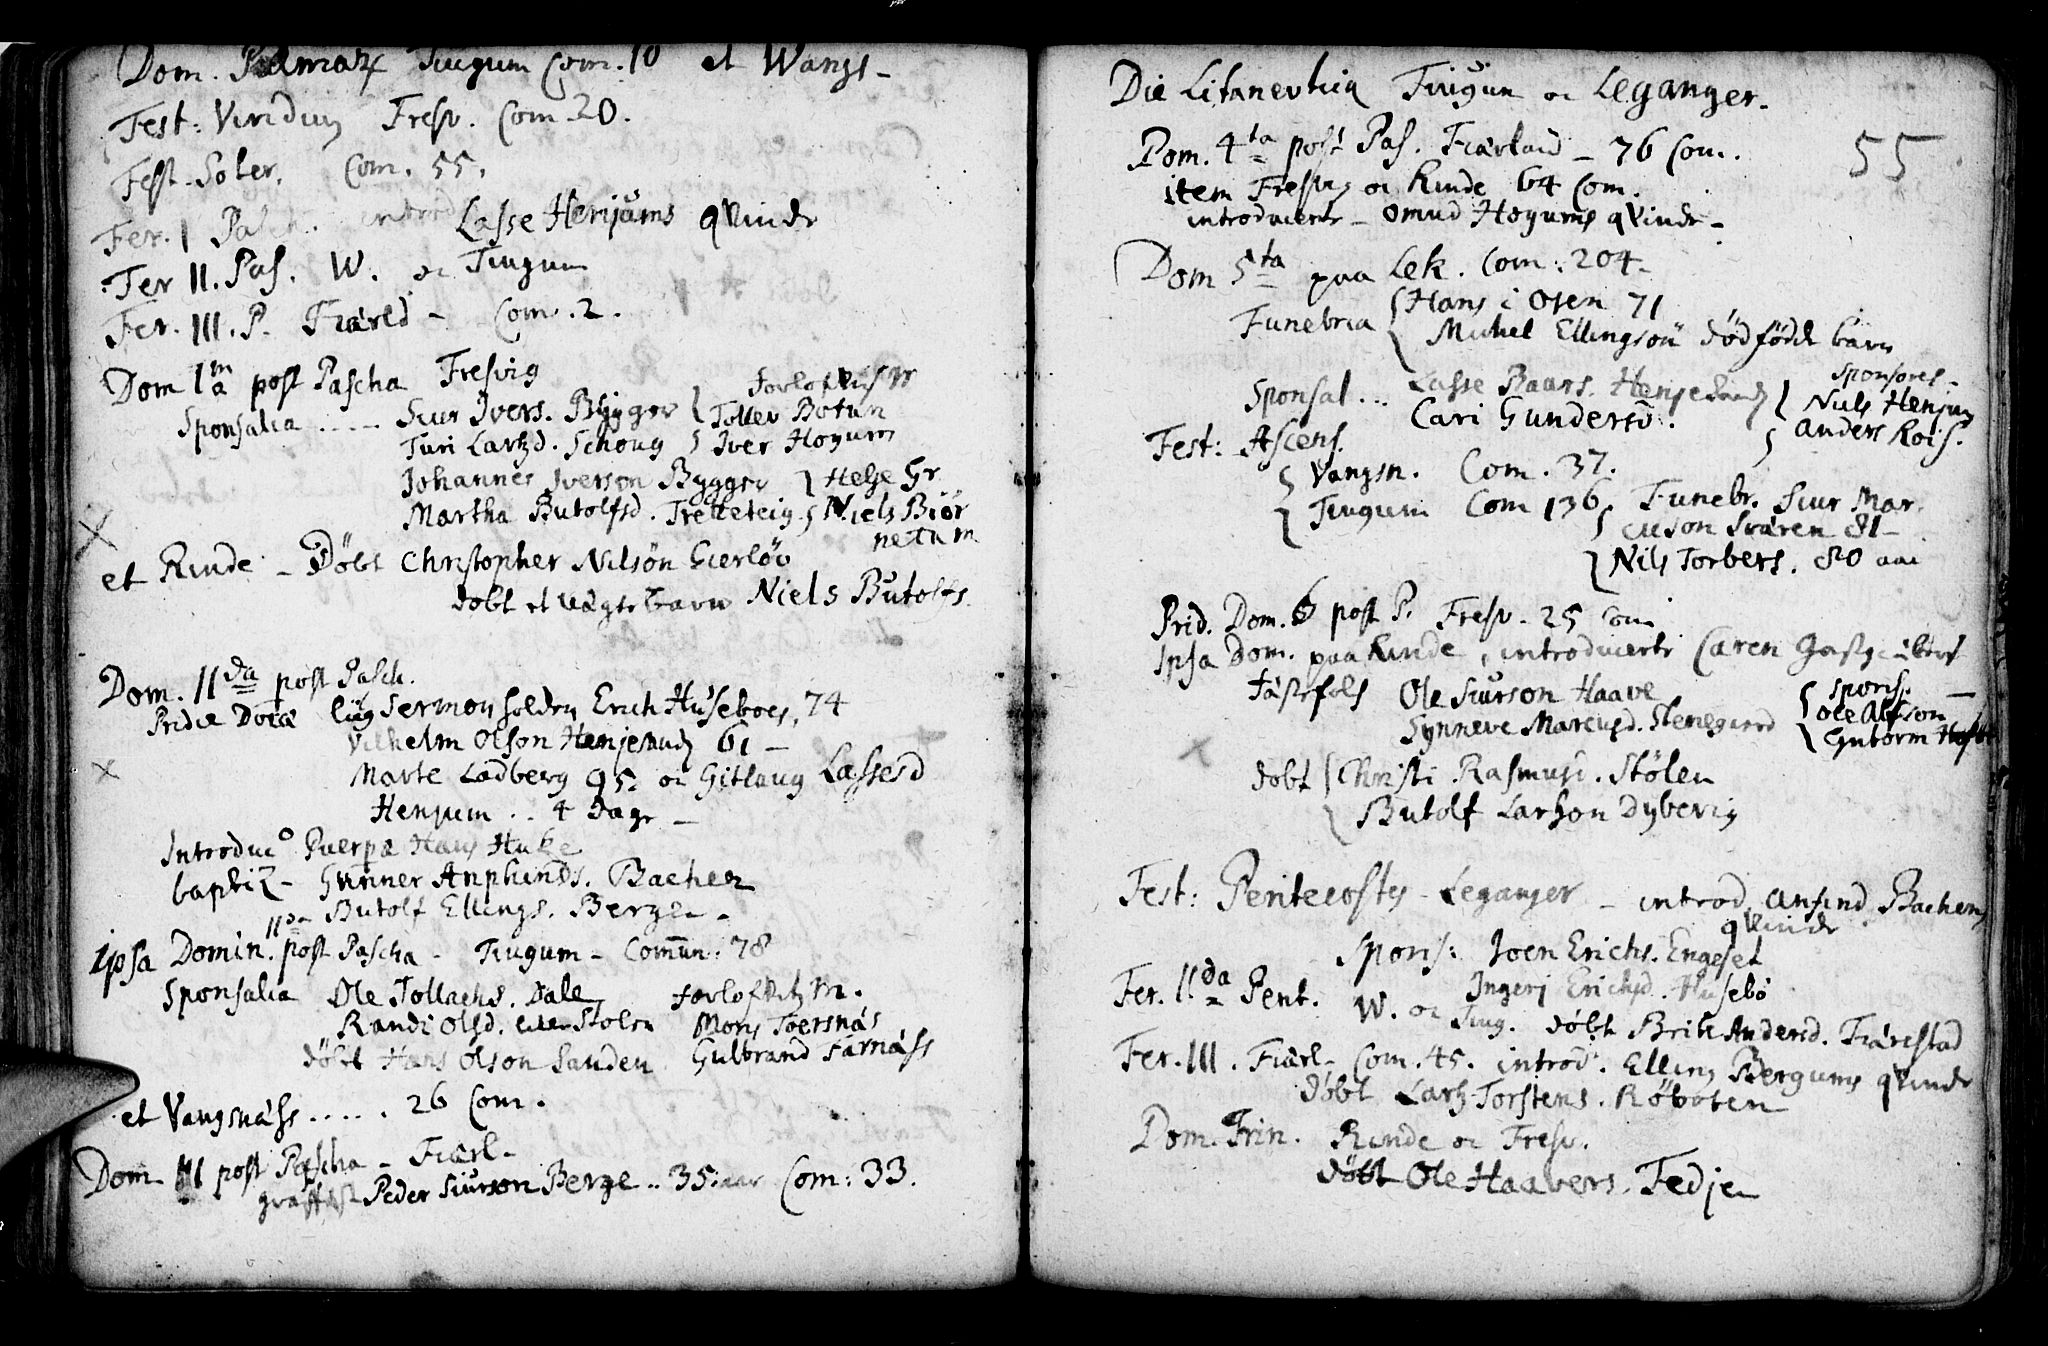 Dom. Palmar Tiugum Com. 10 et Wangs-
Fest: Viridium Fresv. Com. 20.
Fest. Soler. Com. 55.
Fer. I Pasch. introd Lasse Henjums qvinde
Fer II. Pas. W. oc Tiugum
Fer. III. P. Fiærld - Com. 2.
Dom 1ma post Pascha Fresvig
Sponsalia ..... Siur Ivers. Bygger } Toller Botun
Turi Larhd. Schoug } Iver Hogum
Johannes Iverson Bygger } Helje Gr.
Martha Butolfsd. Tretteteig } Niels Biör
netum
et Rinde - Döbt Christopher Nilsön Gierlöv
döbt et barn Niels Butolfs.
Dom. IIda post Pasch.
Pridie Liig Sermon holden Erich Huseboes, 74
Vilhelm Olson Henjesand 61 -
Marte Ladberg 95. oc Gitlaug Lassesd
Henjum .. 4 Dage -
Introduc° Puerpa Hans Huke
baptiz - Gunner Anphinds. Bachen
Butolf Ellings. Berge -
ipsa Domin. IIda post Pascha - Tiugum - Comun: 78
Sponsalia Ole Tollachs. Dale Forlofvis M.
Randi Olsd. Stolen Mons Toersnäs
döbt Hans Olson Sanden Gulbrand Farnäss
et Vangsnäss ..... 26 Com.
Dom III post Pascha - Fiærl -
Peder Siurson Berge .. 35. aar Com: 33.
Die Litanevtica Tiugun oc Leganger.
55
Dom. 4ta post Pas. Fiærland - 76 Com.
item Fresvig oc Rinde 64 Com.
introducerte - Omund Hogums qvinde -
Dom 5ta paa Lek. Com: 204 -
Funebria { Hans i Osen 71
Michel Ellingsön dödfödt barn
Sponsal ... Lasse Baars. Henjesand } Sponsores -
Cari Gundersd. } Niels Henjum
Anders Rois.
Fest: Ascens.
{ Vangsn. Com. 37.
{ Tiugum Com 136 { Funebr. Siur Mar-
cuson Svären 81 -
{ Nils Torbers. 80 aar
Prid. Dom. 6 post P. Fresv. 25 Com
Ipsa Dom. paa Rinde, introducerte Caren
Fästefolk Ole Siurson Haave { spons. -
Synneve Marcusd. Stenegaard { Ole Alfson
{ Gutorm
döbt { Christi Rasmusd. Stölen
{ Butolf Larhson Dybevig
Fest: Pentecostes - Leganger - introd. Anfind Bachens
qvinde
Spons: Joen Erichs. Engeset
Ingeri Erichsd. Husebö
Fer. IIda Pent. W. oc Tiug. döbt Brite Andersd. Fiærestad
Fer. III. Fiärl - Com. 45. introd. Elling Bergums qvinde
döbt Larh Torstens. Röboten
Dom. Trin. Rinde oc Fresv.
döbt Ole Haavers. Tedje -